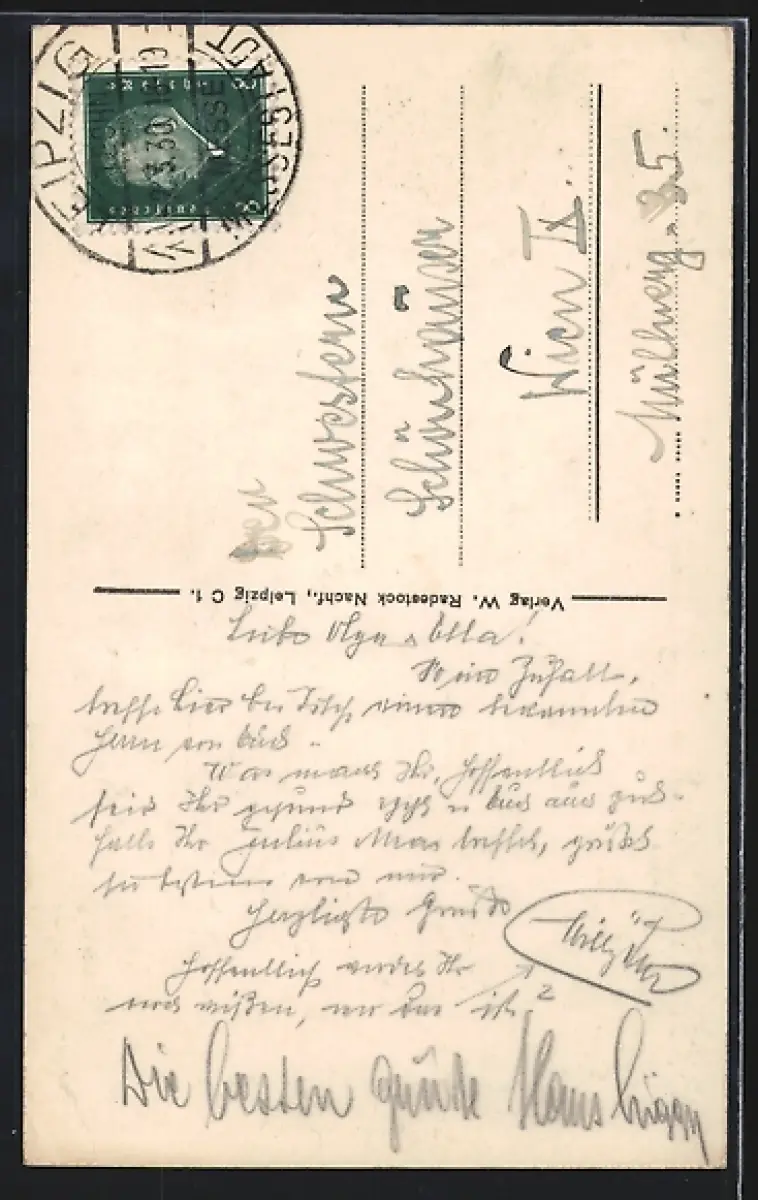 LEIPZIG
MESSESTADT
3.30
Den
Schwestern
Schönhäuser
Wien IX.
Müllnerg. 35.
Verlag W. Radestock Nachf., Leipzig C 1.
Liebe Olga u. Ella!
Zufall,
treffe hier bei Tisch einen bekannten
Herrn von Euch.
Was macht Ihr, hoffentlich
seid Ihr gesund
falls Ihr Julius trefft, grüßt
von mir.
Herzlichste Grüße
Willy
Hoffentlich werdet Ihr
noch wissen, wer das ist?
Die besten Grüße Hans